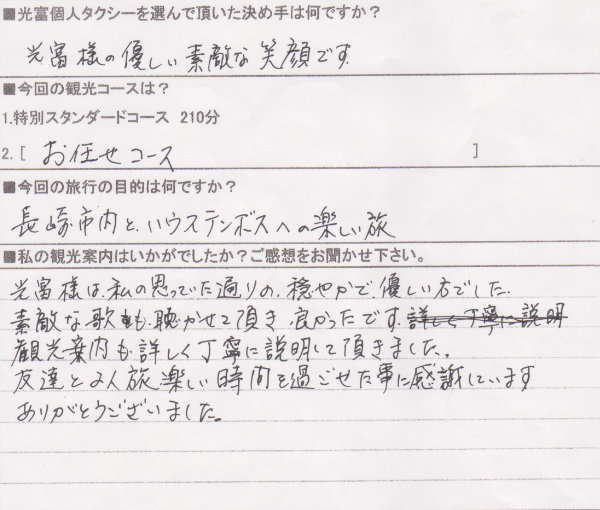 ■光富個人タクシーを選んで頂いた決め手は何ですか?
光富様の優しい素敵な笑顔です
■今回の観光コースは?
1.特別スタンダードコース 210分
2.[ お任せコース ]
■今回の旅行の目的は何ですか?
長崎市内と、ハウステンボスへの楽しい旅
■私の観光案内はいかがでしたか?ご感想をお聞かせ下さい。
光富様は、私の思っていた通りの、穏やかで、優しい方でした。
素敵な歌も、聴かせて頂き、良かったです。詳しく丁寧に説明
観光案内も、詳しく丁寧に説明して頂きました。
友達と2人旅楽しい時間を過ごせた事に感謝しています
ありがとうございました。